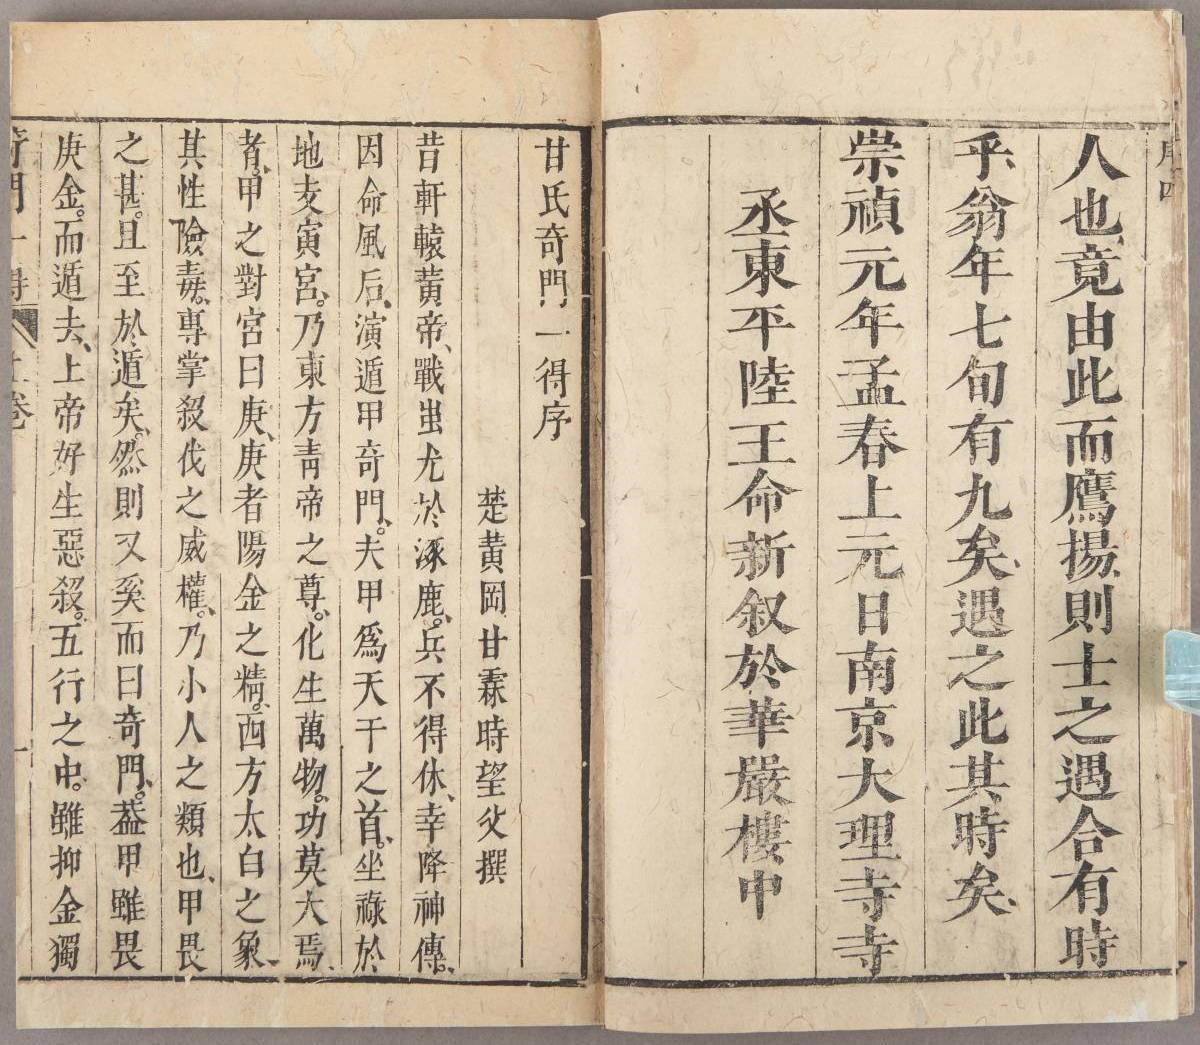 序 四
人也、竟由此而鷹揚、則士之遇合有時
乎、翁年七旬有九矣、遇之此其時矣、
崇禎元年孟春上元日南京大理寺寺
丞東平陸王命新叙於華嚴樓中
甘氏奇門一得序
楚黄岡甘霖時望父撰
昔軒轅黄帝、戰蚩尤於涿鹿。兵不得休、幸降神傳、
因命風后、演遁甲奇門。夫甲爲天干之首。坐祿於
地支寅宮。乃東方靑帝之尊。化生萬物。功莫大焉、
者。甲之對宮曰庚、庚者陽金之精。西方太白之象、
其性險毒。專掌殺伐之威權。乃小人之類也、甲畏
之甚。且至於遁矣。然則又奚而曰奇門。葢甲雖畏
庚金。而遁去、上帝好生惡殺。五行之中。雖抑金獨
奇門一得 上卷 一